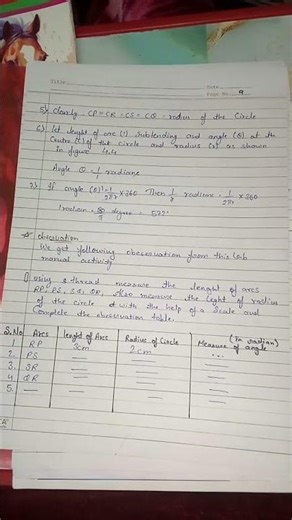 Title
Date
Page No. 9
5) Clearly CP = CR = CS = CQ = radius of the Circle
6) let lenght of arc (l) subtending and angle (θ) at the
Centre (C) of the circle and radius (r) as shown
In figure 4.4
Angle θ radians
7) If angle (θ) × 360 Then radians × 360
1 radian = degree
Observation
We get following observation from this lab
manual activity
① using a thread measure the lenght of arcs
RP, PS, SR, QR, Also measure the lenght of radius
of the circle with the help of a scale and
Complete the observation table.
S.No Arcs lenght of Arcs Radius of Circle Measure of angle (In radian)
1. RP 3cm 2cm ...
2. PS
3. SR
4 QR
5.